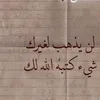 لن يذهب لغيرك
شيء كتبهُ الله لك